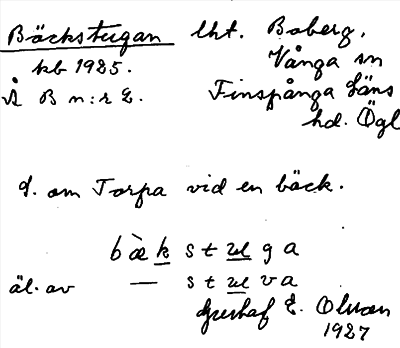 Bäckstugan lht. Boberg,
kb 1925. Vånga sn
Å B n:r 2. Finspånga Läns
hd. Ögl
Ö. om Torpa vid en bäck.
bæ̀k stuga
äl. av — stuva
Gustaf E. Olsson
1927